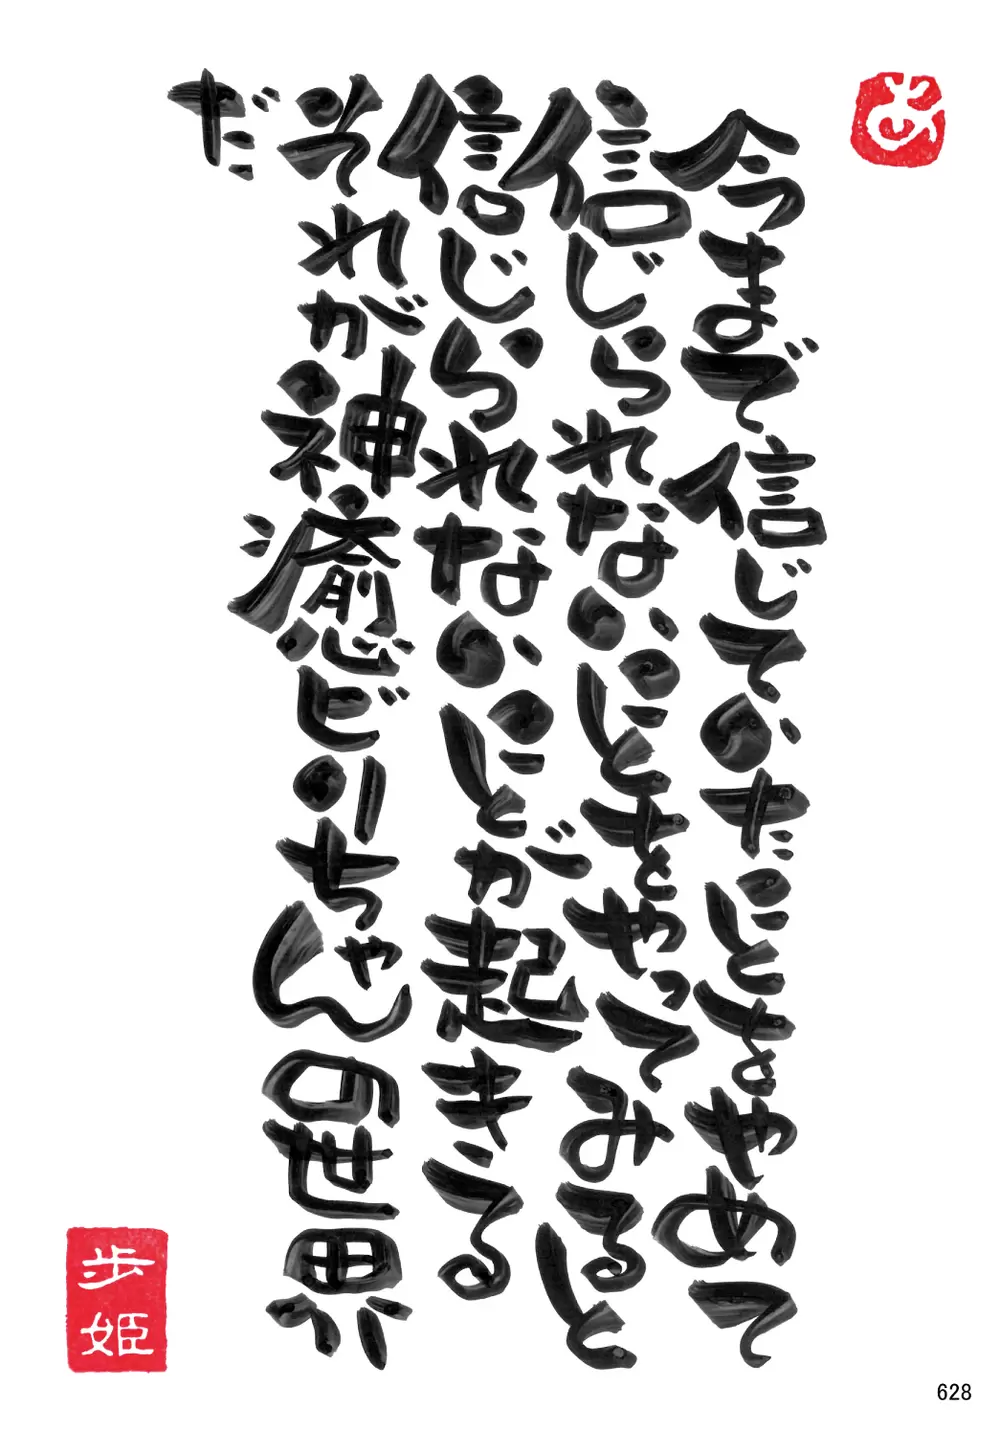 あ
今まで信じてかだことをやめて
信じられないことをやってみると
信じられないことが起きる
それが神癒ビーちゃんの世界
だ
歩
姫
628